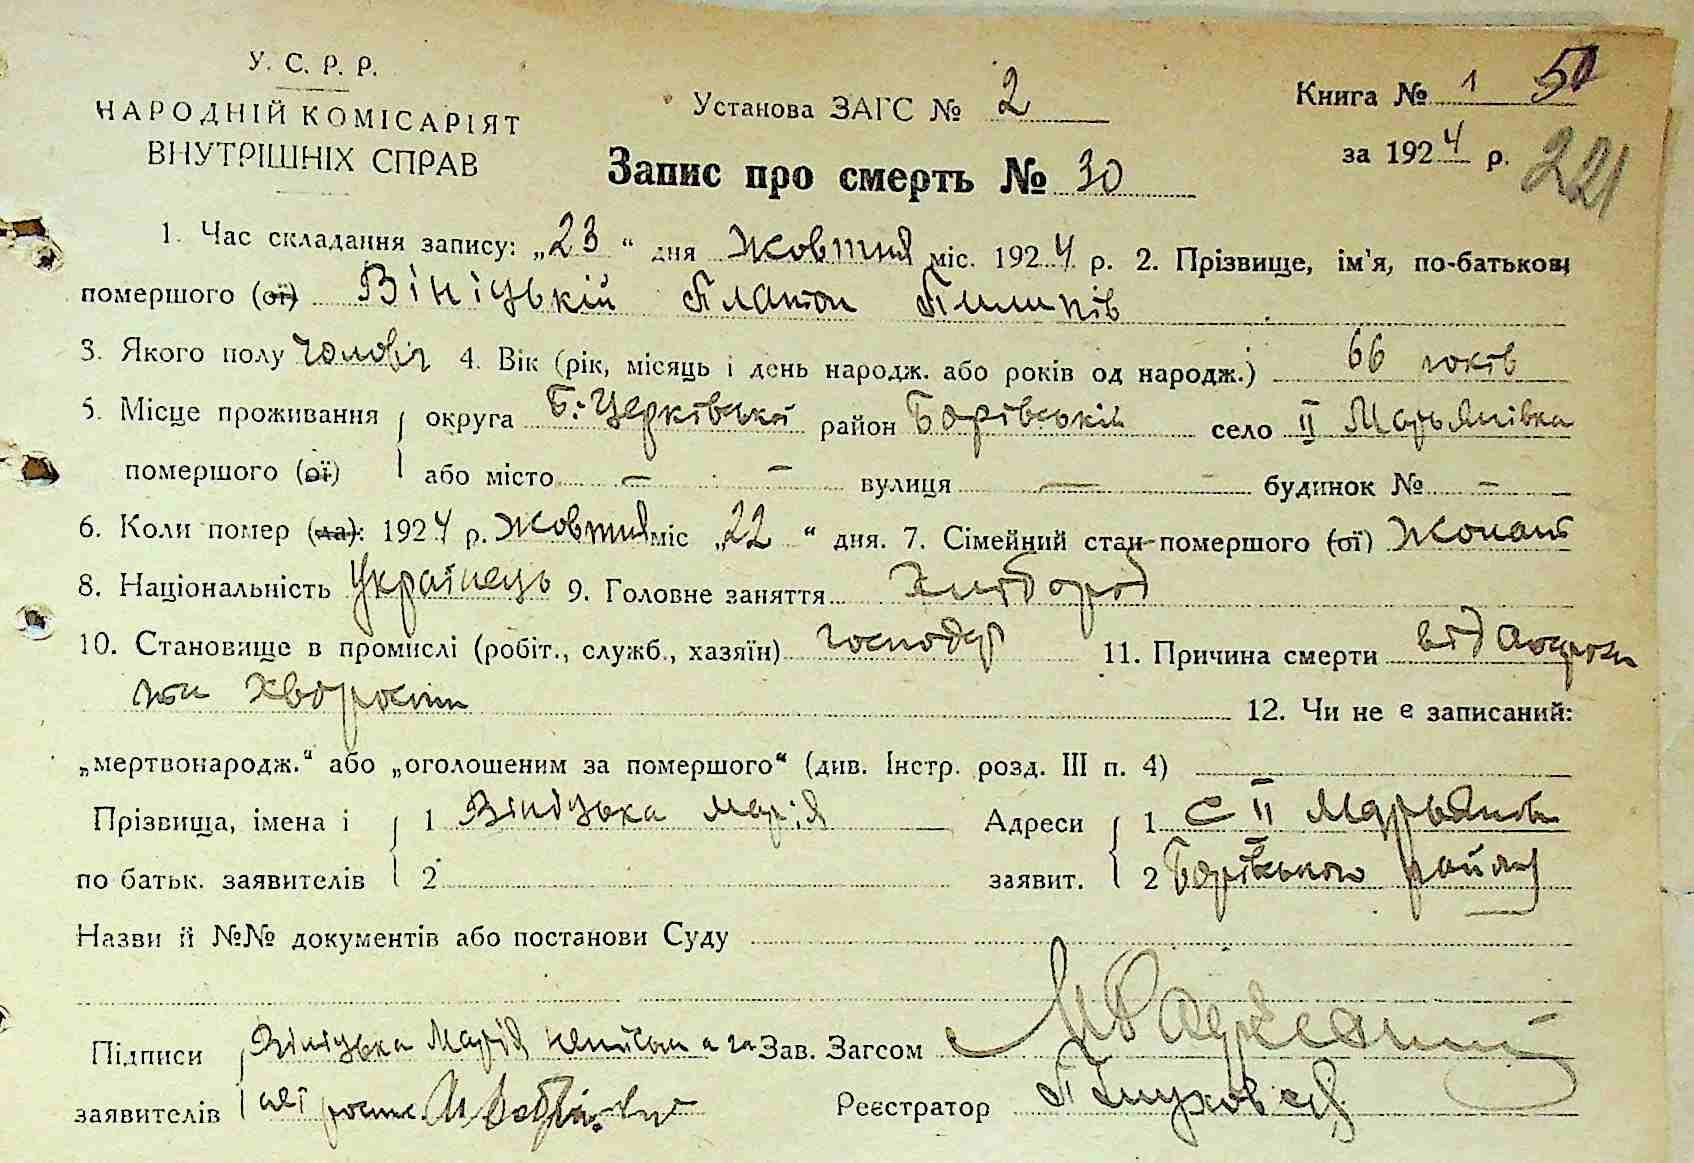 У. С. Р. Р.
НАРОДНІЙ КОМІСАРІЯТ
ВНУТРІШНІХ СПРАВ
Установа ЗАГС № 2
Книга № 1 50
за 1924 р. 221
Запис про смерть № 30
1. Час складання запису: „23“ дня Жовтня міс. 1924 р. 2. Прізвище, ім'я, по-батькові
помершого (ої) Вініцькій Платон Пилипів
3. Якого полу чоловіч 4. Вік (рік, місяць і день народж. або років од народж.) 66 років
5. Місце проживання округа Б-Церківської район Борівській село ІІ Марьянівка
помершого (ої) або місто — — вулиця — будинок № —
6. Коли помер (ла): 1924 р. Жовтня міс „22“ дня. 7. Сімейний стан помершого (ої) Жонат
8. Національність Українець 9. Головне заняття Хлібороб
10. Становище в промислі (робіт., служб., хазяїн) господар 11. Причина смерти від
хворости 12. Чи не є записаний:
„мертвонародж.“ або „оголошеним за помершого“ (див. Інстр. розд. III п. 4)
Прізвища, імена і 1 Вініцька Марія Адреси 1 С ІІ Марьянов
по батьк. заявителів 2 заявит. 2 Борівського району
Назви й №№ документів або постанови Суду
Підписи Вініцька Марія Зав. Загсом
заявителів неї роспис. Реєстратор